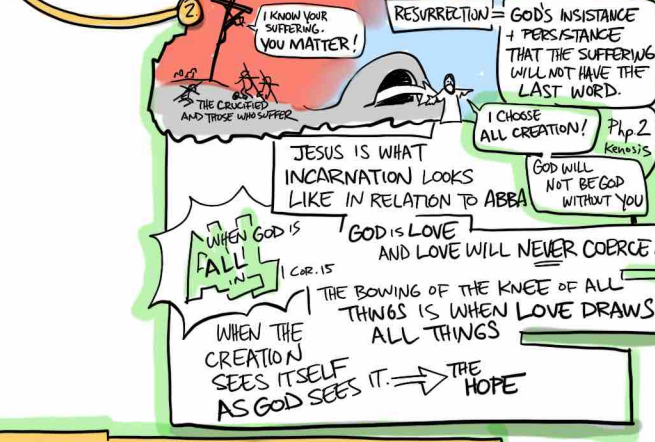 2
I KNOW YOUR
SUFFERING.
YOU MATTER!
RESURRECTION =
GOD'S INSISTANCE
+ PERSISTANCE
THAT THE SUFFERING
WILL NOT HAVE THE
LAST WORD.
THE CRUCIFIED
AND THOSE WHO SUFFER
I CHOOSE
ALL CREATION!
Php. 2
Kenosis
GOD WILL
NOT BE GOD
WITHOUT YOU
JESUS IS WHAT
INCARNATION LOOKS
LIKE IN RELATION TO ABBA
WHEN GOD IS
ALL
IN
1 COR. 15
GOD IS LOVE
AND LOVE WILL NEVER COERCE.
THE BOWING OF THE KNEE OF ALL
THINGS IS WHEN LOVE DRAWS
ALL THINGS
WHEN THE
CREATION
SEES ITSELF
AS GOD SEES IT. ⇒
THE
HOPE